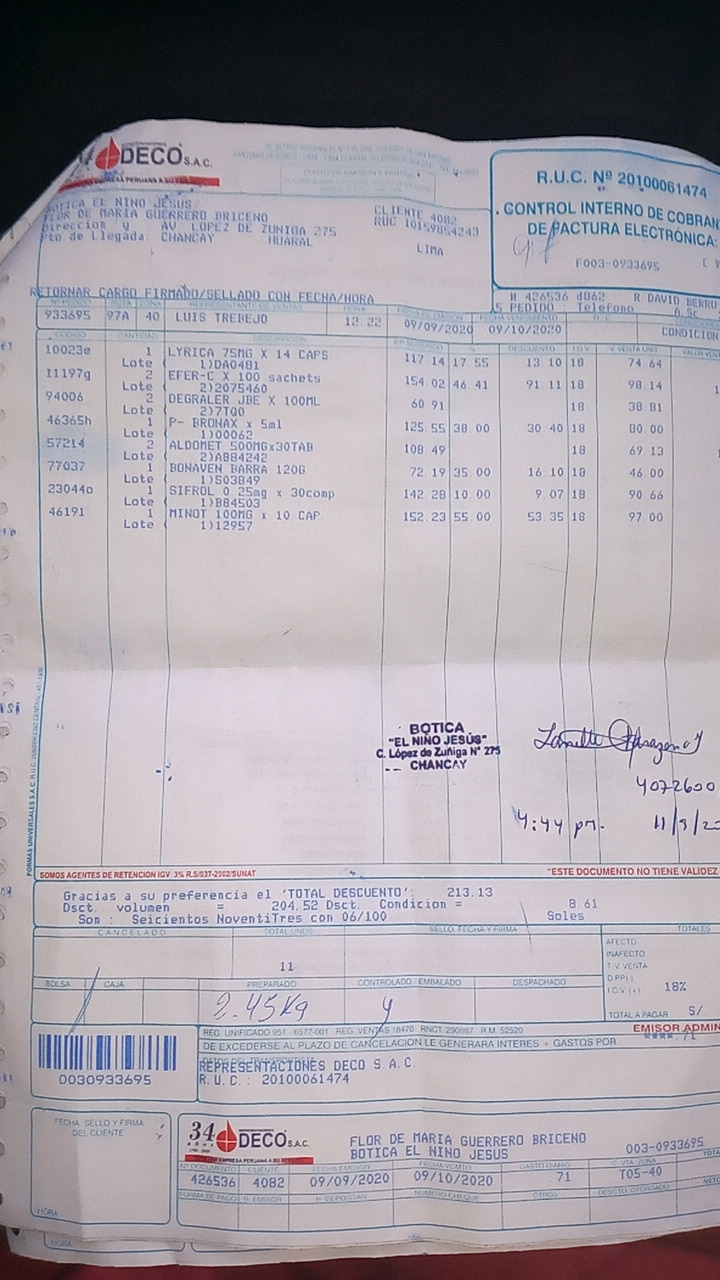 34 DECO S.A.C.
EMPRESA PERUANA A SU
R.U.C. Nº 20100061474
CONTROL INTERNO DE COBRAN
DE FACTURA ELECTRÓNICA:
F003-0933695
BOTICA EL NINO JESUS
FLOR DE MARIA GUERRERO BRICENO
Direccion y AV LOPEZ DE ZUNIGA 275
Pto de Llegada CHANCAY HUARAL
CLIENTE 4082
RUC 10159854243
LIMA
RETORNAR CARGO FIRMADO/SELLADO CON FECHA/HORA
N 426536 4082 R. DAVID BERRU
PEDIDO Telefono
Nº PEDIDO RUTA ZONA REPRESENTANTE DE VENTAS HORA FECHA DE EMISION FECHA VENCIMIENTO O/C CONDICION
933695 97A 40 LUIS TREBEJO 12.22 09/09/2020 09/10/2020
CODIGO CANTIDAD DESCRIPCION P.P. SUGERIDO % DESCUENTO I.G.V. V. VENTA UNIT. VALOR VENT
10023e 1 LYRICA 75MG X 14 CAPS 117.14 17.55 13.10 18 74.64
Lote ( 1)DA0481
11197g 2 EFER-C X 100 sachets 154.02 46.41 91.11 18 98.14
Lote ( 2)2075460
94006 2 DEGRALER JBE X 100ML 60.91 18 38.81
Lote ( 2)7T00
46365h 1 P- BRONAX x 5ml 125.55 38.00 30.40 18 80.00
Lote ( 1)00062
57214 2 ALDOMET 500MGx30TAB 108.49 18 69.13
Lote ( 2)A884242
77037 1 BONAVEN BARRA 120G 72.19 35.00 16.10 18 46.00
Lote ( 1)S03849
23044o 1 SIFROL 0.25mg x 30comp 142.28 10.00 9.07 18 90.66
Lote ( 1)B84503
46191 1 MINOT 100MG x 10 CAP 152.23 55.00 53.35 18 97.00
Lote ( 1)12957
BOTICA
"EL NIÑO JESÚS"
C. López de Zuñiga Nº 275
CHANCAY
4072600
4:44 pm. 11/9/20
SOMOS AGENTES DE RETENCION IGV. 3% R.S/037-2002/SUNAT
"ESTE DOCUMENTO NO TIENE VALIDEZ
Gracias a su preferencia el 'TOTAL DESCUENTO': 213.13
Dsct. volumen = 204.52 Dsct. Condicion = 8.61
Son : Seicientos NoventiTres con 06/100 Soles
CANCELADO TOTAL UNDS. SELLO, FECHA Y FIRMA TOTALES
11
AFECTO
INAFECTO
T. V. VENTA
D.PP(-)
I.G.V.(+) 18%
TOTAL A PAGAR S/.
BOLSA CAJA PREPARADO CONTROLADO / EMBALADO DESPACHADO
2.45Kg 4
REG. UNIFICADO 951 - 6577-001 REG. VENTAS 18470 RNCT 290867 R.M. 52520
EMISOR ADMIN
DE EXCEDERSE AL PLAZO DE CANCELACION LE GENERARA INTERES + GASTOS POR
DATOS DEL TRANSPORTISTA
REPRESENTACIONES DECO S.A.C.
R.U.C.: 20100061474
0030933695
FECHA, SELLO Y FIRMA
DEL CLIENTE
HORA:
34 AÑOS DECO S.A.C.
EMPRESA PERUANA A SU
FLOR DE MARIA GUERRERO BRICENO
BOTICA EL NINO JESUS
003-0933695
Nº DOCUMENTO CLIENTE FECHA EMISION FECHA VCMTO GASTO DIARIO C. VTA. ZONA TOTA
426536 4082 09/09/2020 09/10/2020 .71 T05-40
FORMA DE PAGO B. EMISOR H. DEPOSITAR NUMERO CHEQUE OTROS DESCTO. OTORGADO NETO
HORA: